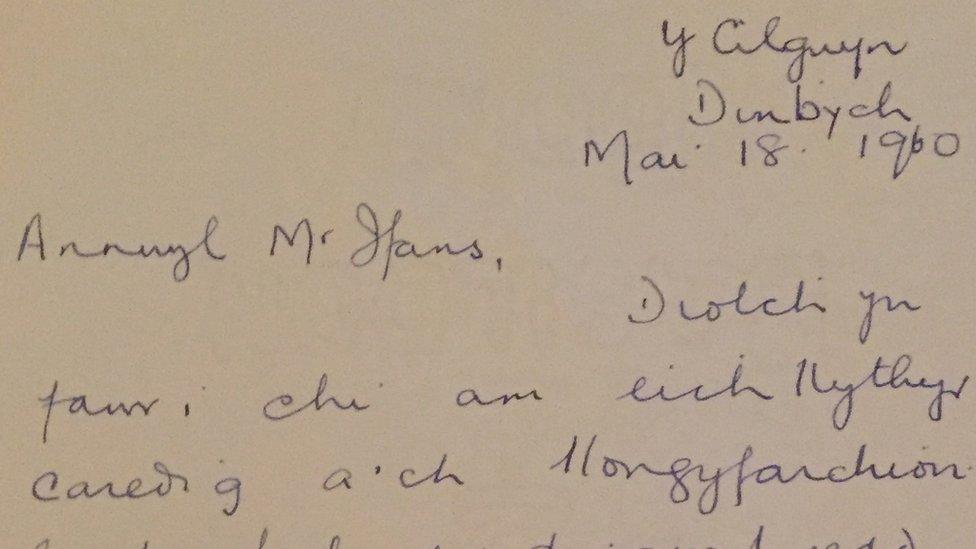 Y Cilgwyn
Dinbych
Mai 18. 1960
Annwyl Mr Ifans,
Diolch yn
fawr i chi am eich llythyr
caredig a'ch llongyfarchion.